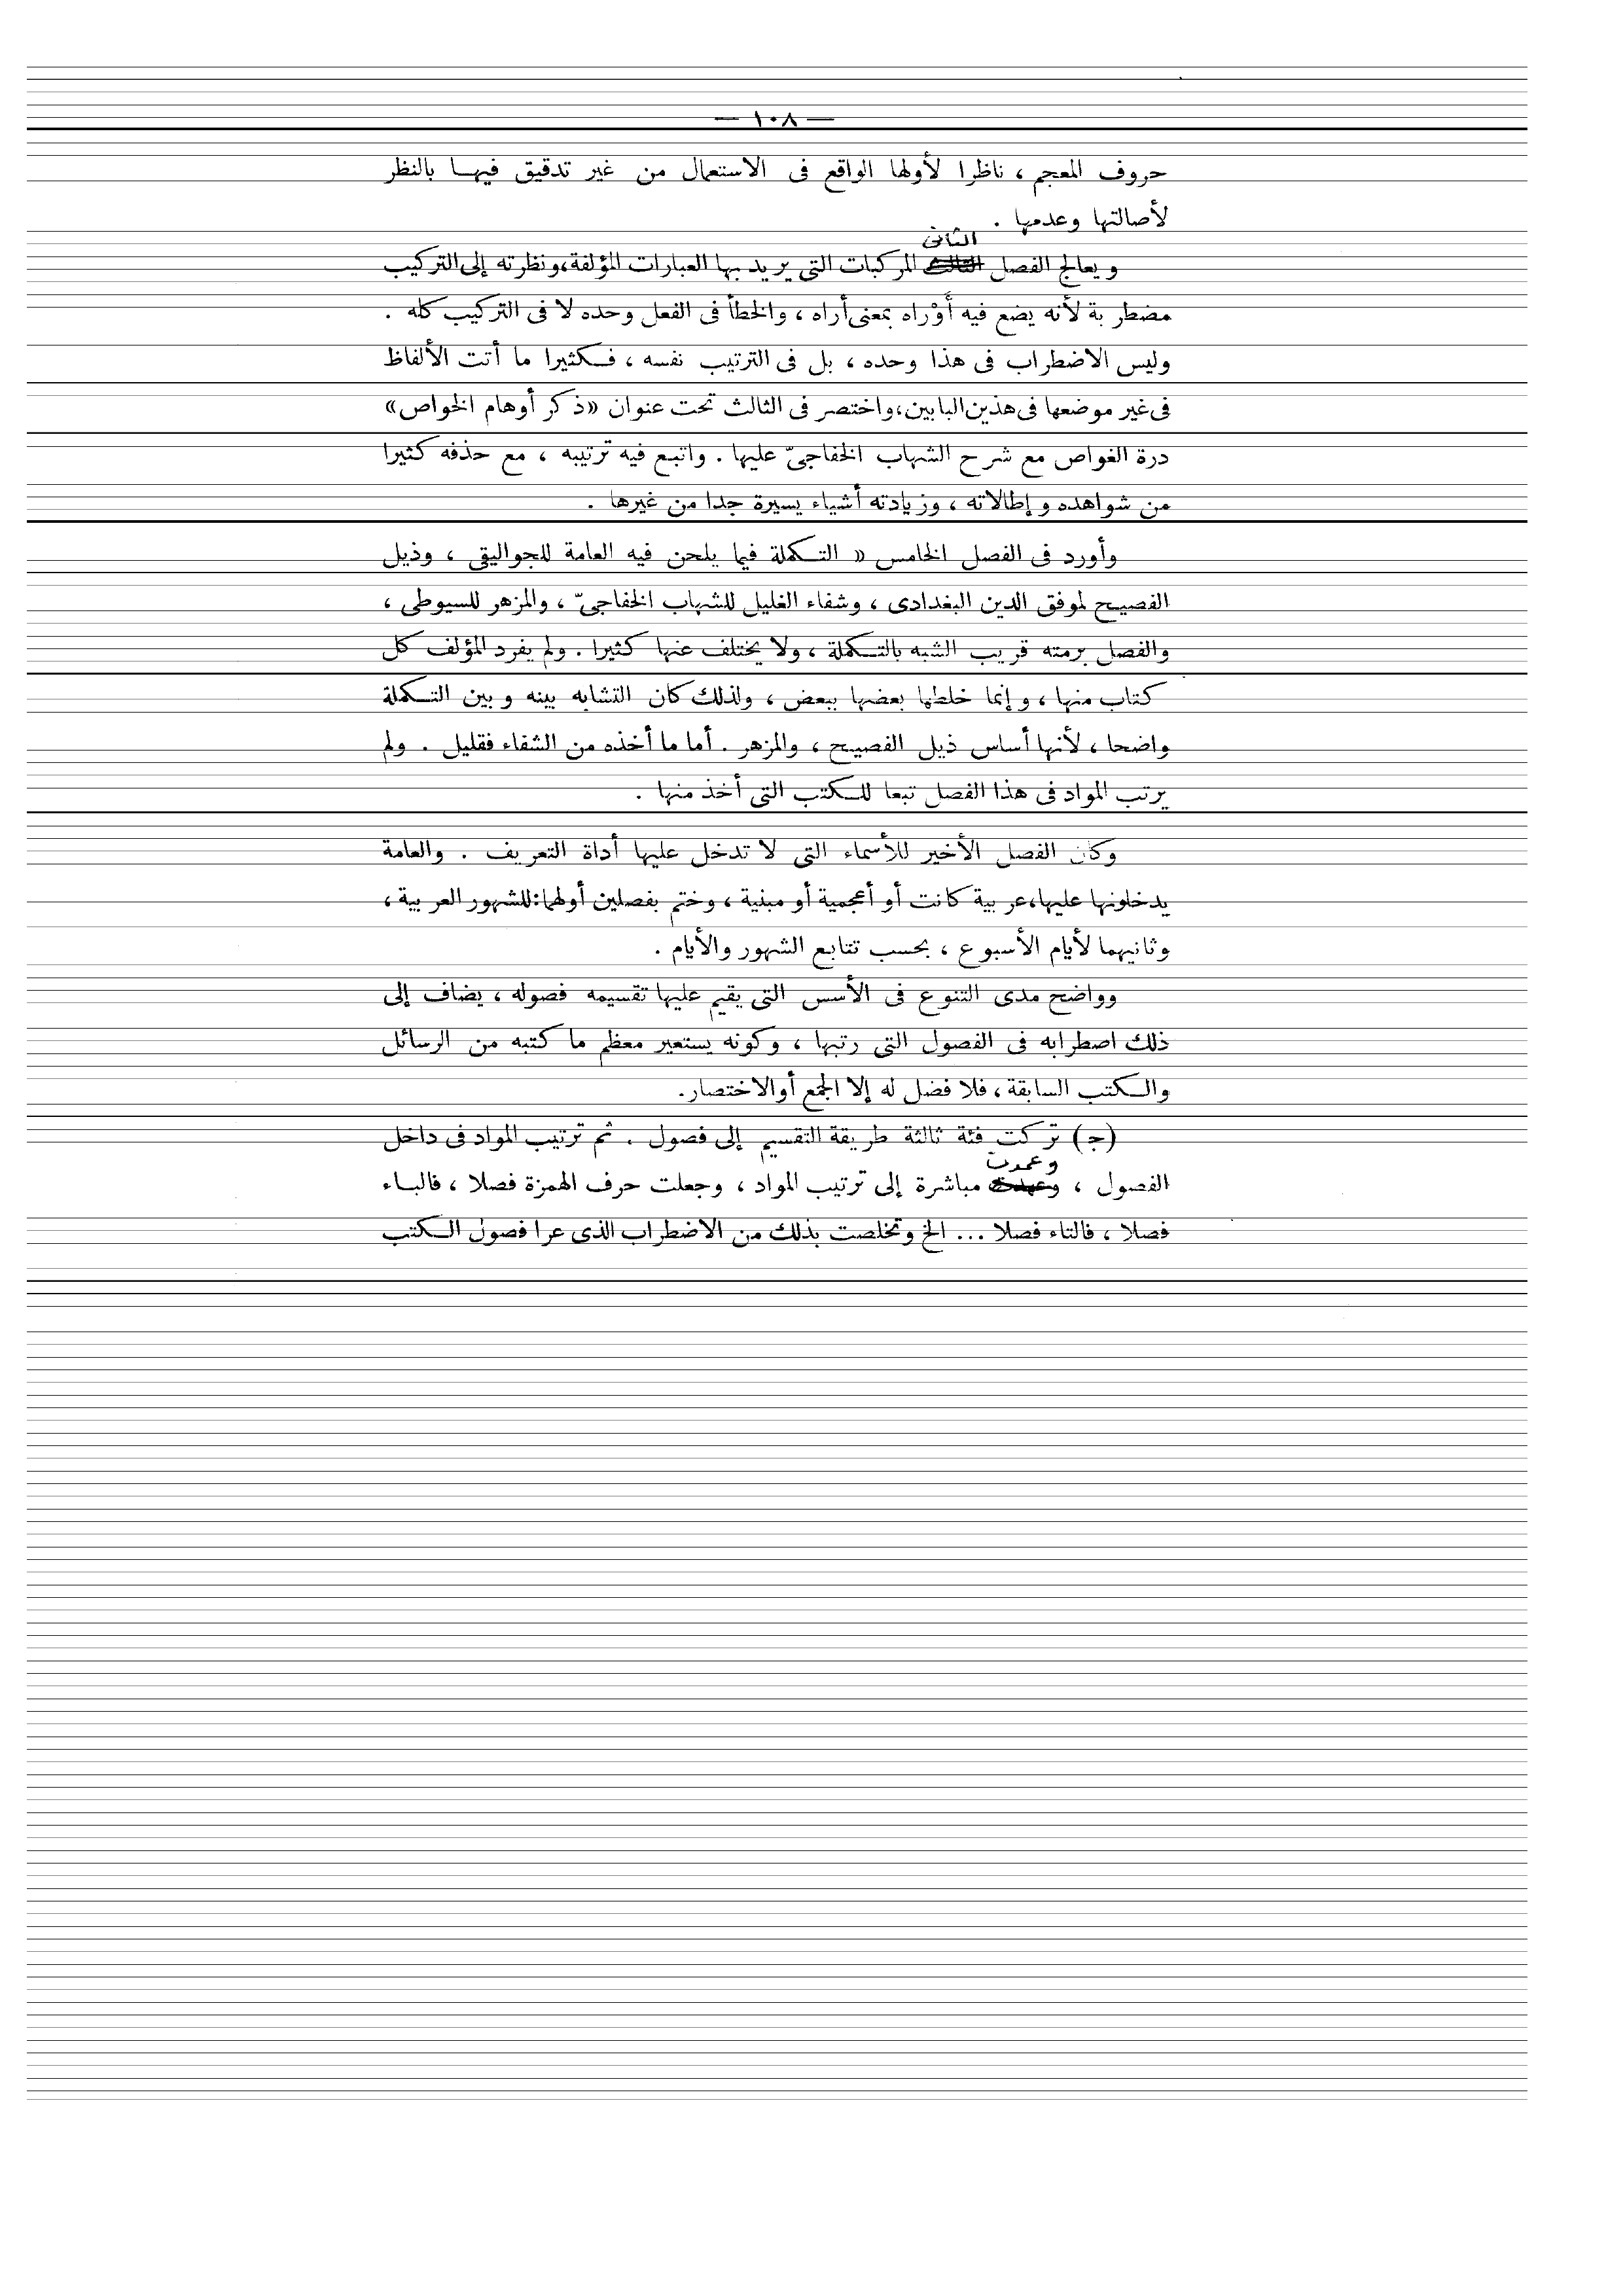 — ١٠٨ —
حروف المعجم ، ناظرا لأولها الواقع فى الاستعمال من غير تدقيق فيها بالنظر
لأصالتها وعدمها .
الثانى
ويعالج الفصل الثالث المركبات التى يريد بها العبارات المؤلفة،ونظرته إلى التركيب
مضطربة لأنه يضع فيه أَوْراه بمعنى أراه ، والخطأ فى الفعل وحده لا فى التركيب كله .
وليس الاضطراب فى هذا وحده ، بل فى الترتيب نفسه ، فكثيرا ما أتت الألفاظ
فى غير موضعها فى هذين البابين،واختصر فى الثالث تحت عنوان «ذكر أوهام الخواص»
درة الغواص مع شرح الشهاب الخفاجىّ عليها . واتبع فيه ترتيبه ، مع حذفه كثيرا
من شواهده وإطالاته ، وزيادته أشياء يسيرة جدا من غيرها .
وأورد فى الفصل الخامس « التكملة فيما يلحن فيه العامة للجواليقى ، وذيل
الفصيح لموفق الدين البغدادى ، وشفاء الغليل للشهاب الخفاجىّ ، والمزهر للسيوطى ،
والفصل برمته قريب الشبه بالتكملة ، ولا يختلف عنها كثيرا . ولم يفرد المؤلف كل
كتاب منها ، وإنما خلطها بعضها ببعض ، ولذلك كان التشابه بينه وبين التكملة
واضحا ، لأنها أساس ذيل الفصيح ، والمزهر . أما ما أخذه من الشفاء فقليل . ولم
يرتب المواد فى هذا الفصل تبعا للكتب التى أخذ منها .
وكان الفصل الأخير للأسماء التى لا تدخل عليها أداة التعريف . والعامة
يدخلونها عليها،عربية كانت أو أعجمية أو مبنية ، وختم بفصلين أولهما:للشهور العربية ،
وثانيهما لأيام الأسبوع ، بحسب تتابع الشهور والأيام .
وواضح مدى التنوع فى الأسس التى يقيم عليها تقسيمه فصوله ، يضاف إلى
ذلك اصطرابه فى الفصول التى رتبها ، وكونه يستعير معظم ما كتبه من الرسائل
والكتب السابقة ، فلا فضل له إلا الجمع أوالاختصار.
(ج) تركت فئة ثالثة طريقة التقسيم إلى فصول . ثم ترتيب المواد فى داخل
وعمدت
الفصول ، وعهدت مباشرة إلى ترتيب المواد ، وجعلت حرف الهمزة فصلا ، فالباء
فصلا ، فالتاء فصلا ... الخ وتخلصت بذلك من الاضطراب الذى عرا فصول الكتب